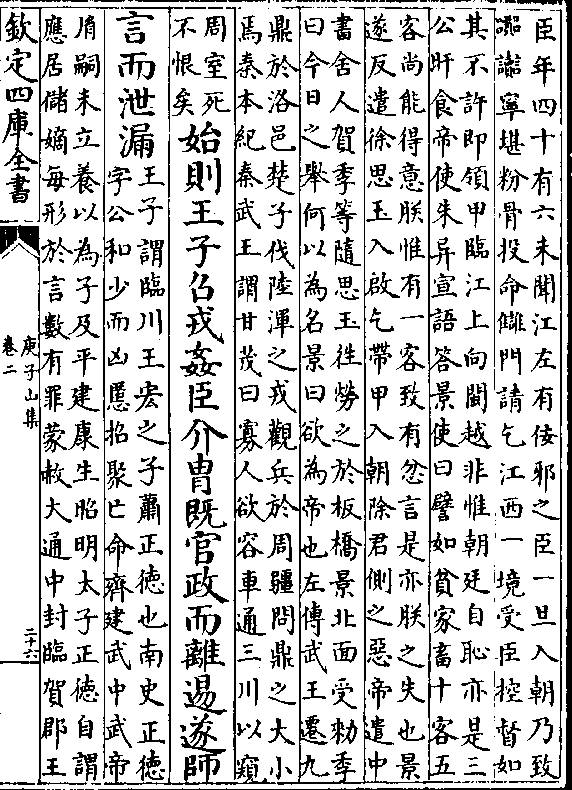 臣年四十有六未聞江左有佞邪之臣一旦入朝乃致
嚻讟寧堪粉骨投命讎門請乞江西一境受臣控督如
其不許即領甲臨江上向閩越非惟朝廷自恥亦是三
公旰食帝使朱异宣語答景使曰譬如貧家畜十客五
客尚能得意朕惟有一客致有忿言是亦朕之失也景
遂反遣徐思玉入啟乞帶甲入朝除君側之惡帝遣中
書舍人賀季等隨思玉徃勞之於板橋景北面受勅季
曰今日之舉何以為名景曰欲為帝也左傳武王遷九
鼎於洛邑楚子伐陸渾之戎觀兵於周疆問鼎之大小
焉秦本紀秦武王謂甘茂曰寡人欲容車通三川以窺
周室死
不恨矣
始則王子召戎姦臣介胄既官政而離逷遂師
言而泄漏
王子謂臨川王宏之子蕭正徳也南史正徳
字公和少而凶慝招聚亡命齊建武中武帝
胤嗣未立養以為子及平建康生昭明太子正徳自謂
應居儲嫡每形於言數有罪蒙赦大通中封臨賀郡王
欽定四庫全書
庾子山集
卷二
二十六